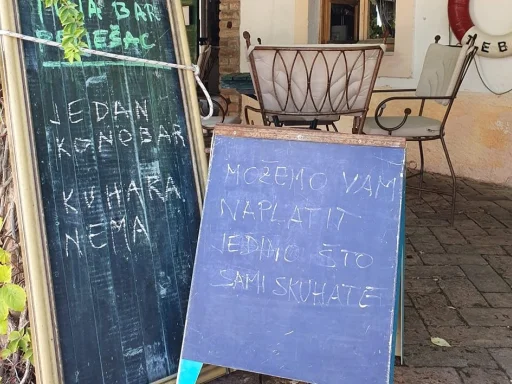 BAR
PELJEŠAC
JEDAN
KONOBAR
KUHARA
NEMA
MOŽEMO VAM
NAPLATIT
JEDINO ŠTO
SAMI SKUHATE